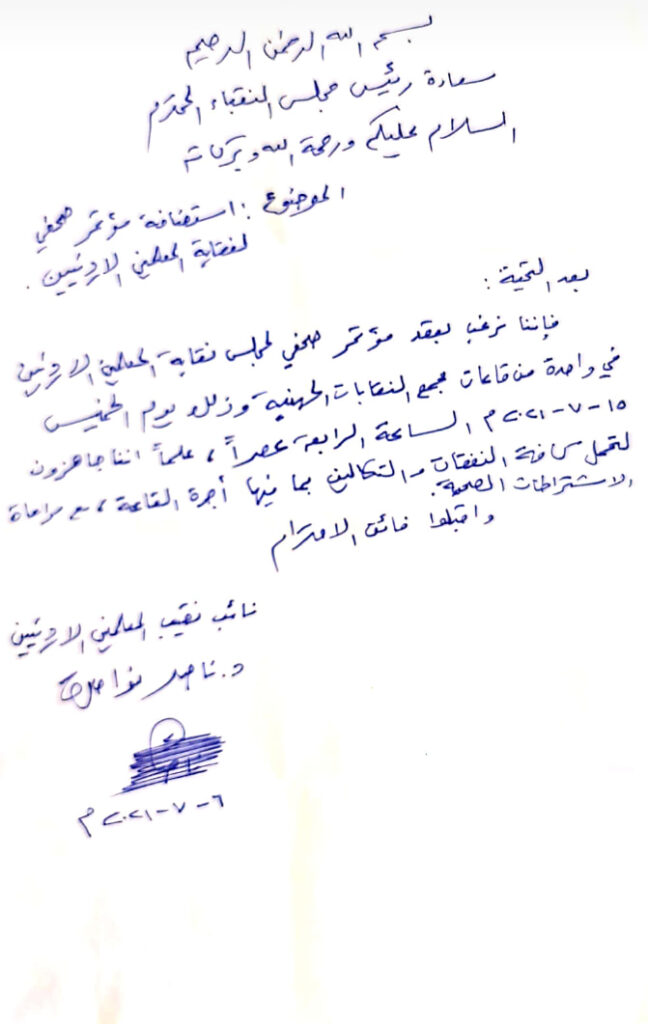 بسم الله الرحمن الرحيم
سعادة رئيس مجلس النقباء المحترم
السلام عليكم ورحمة الله وبركاته
الموضوع : استضافة مؤتمر صحفي
لنقابة المعلمين الاردنيين .
بعد التحية :
فإننا نرغب بعقد مؤتمر صحفي لمجلس نقابة المعلمين الاردنيين
في واحدة من قاعات مجمع النقابات المهنية وذلك يوم الخميس
١٥-٧-٢٠٢١ م الساعة الرابعة عصراً ، علماً اننا جاهزون
لتحمل كافة النفقات والتكاليف بما فيها أجرة القاعة ، مع مراعاة
الاشتراطات الصحية .
واقبلوا فائق الاحترام
نائب نقيب المعلمين الاردنيين
د. ناصر نواصرة
٦-٧-٢٠٢١ م